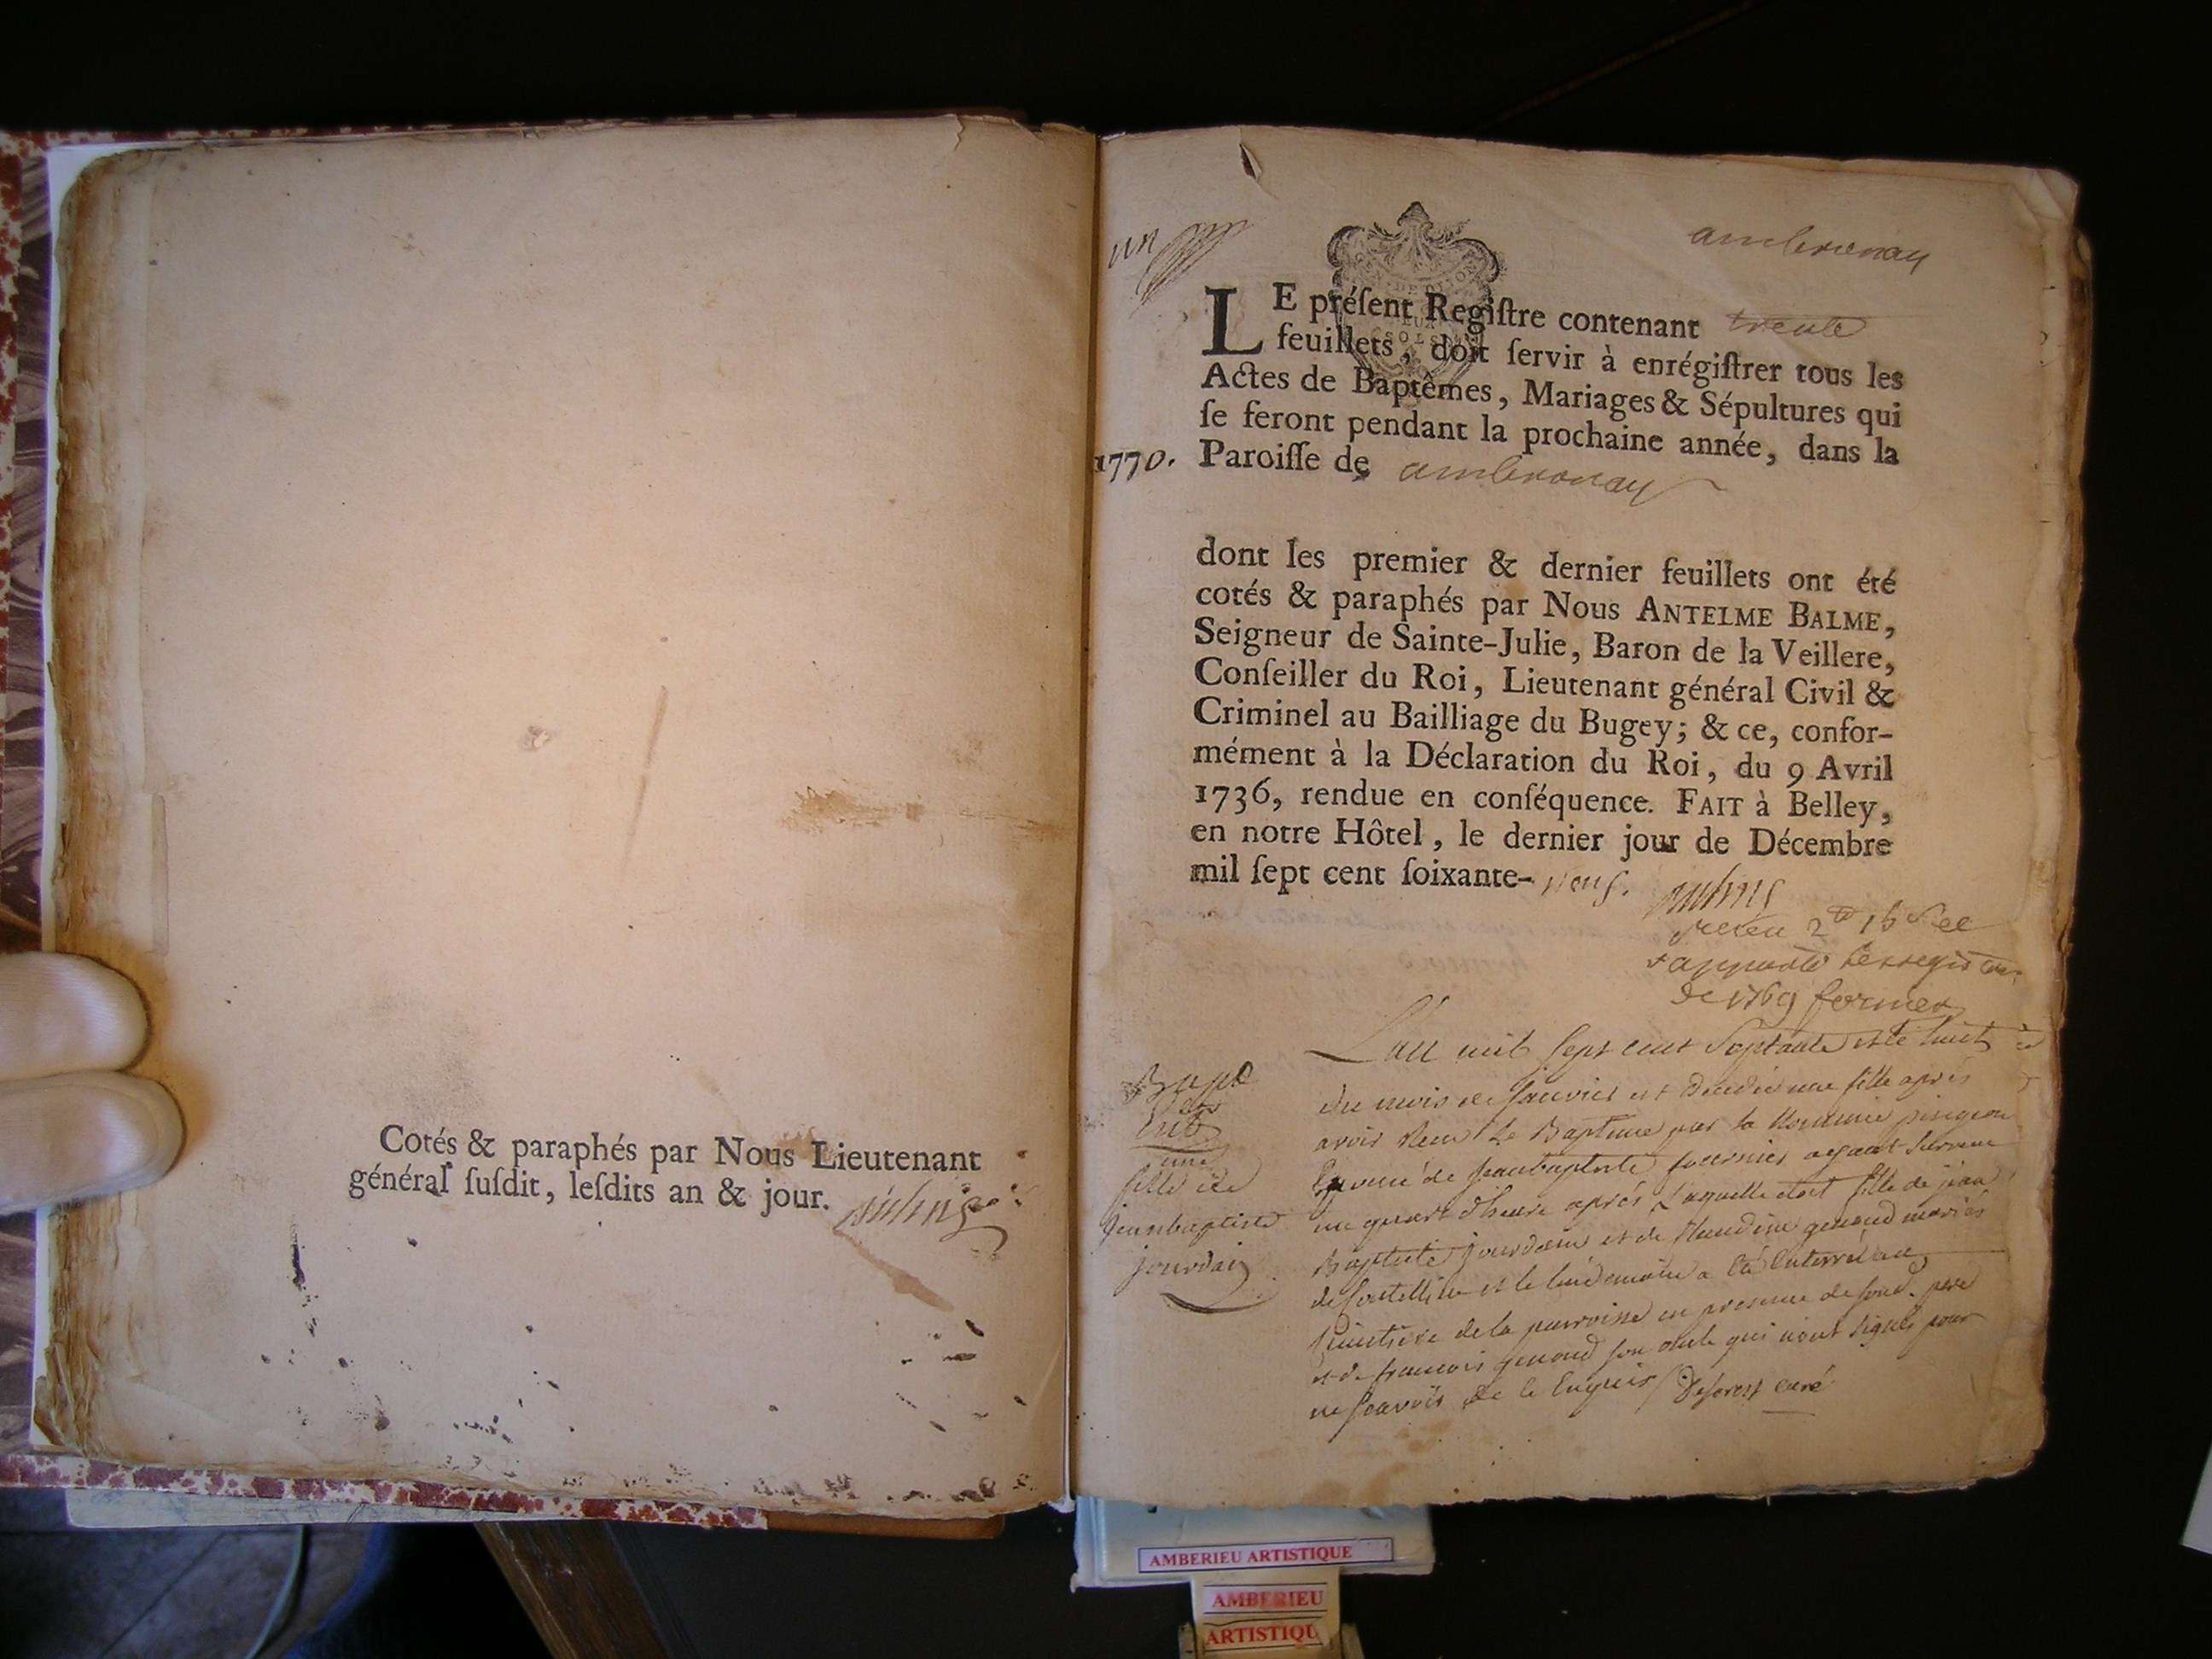 Cotés & paraphés par Nous Lieutenant
général ſuſdit, leſdits an & jour.
un
ambronay
LE préſent Regiſtre contenant trente
feuillets, doit ſervir à enrégiſtrer tous les
Actes de Baptêmes, Mariages & Sépultures qui
ſe feront pendant la prochaine année, dans la
1770. Paroiſſe de ambronay
dont les premier & dernier feuillets ont été
cotés & paraphés par Nous ANTELME BALME,
Seigneur de Sainte-Julie, Baron de la Veillere,
Conſeiller du Roi, Lieutenant général Civil &
Criminel au Bailliage du Bugey; & ce, confor-
mément à la Déclaration du Roi, du 9 Avril
1736, rendue en conſéquence. FAIT à Belley,
en notre Hôtel, le dernier jour de Décembre
mil ſept cent ſoixante-neuf.
receu
de 1769
Bapt
une
fille de
jeanbaptiste
jourdain
L'an mil sept cent septante et le huit
du mois de janvier est decedée une fille après
avoir receu le Baptême par la nommée
épouse de jeanbaptiste fournier ayant survecu
un quart d'heure après laquelle etoit fille de jean
Baptiste jourdain et de Claudine genoud mariés
de et le lendemain a été enterrée au
cimetière de la parroisse en presence de père
et de francois genoud son oncle qui n'ont signés pour
ne sçavoir de ce enquis Deforest curé
AMBERIEU ARTISTIQUE
AMBERIEU
ARTISTIQU